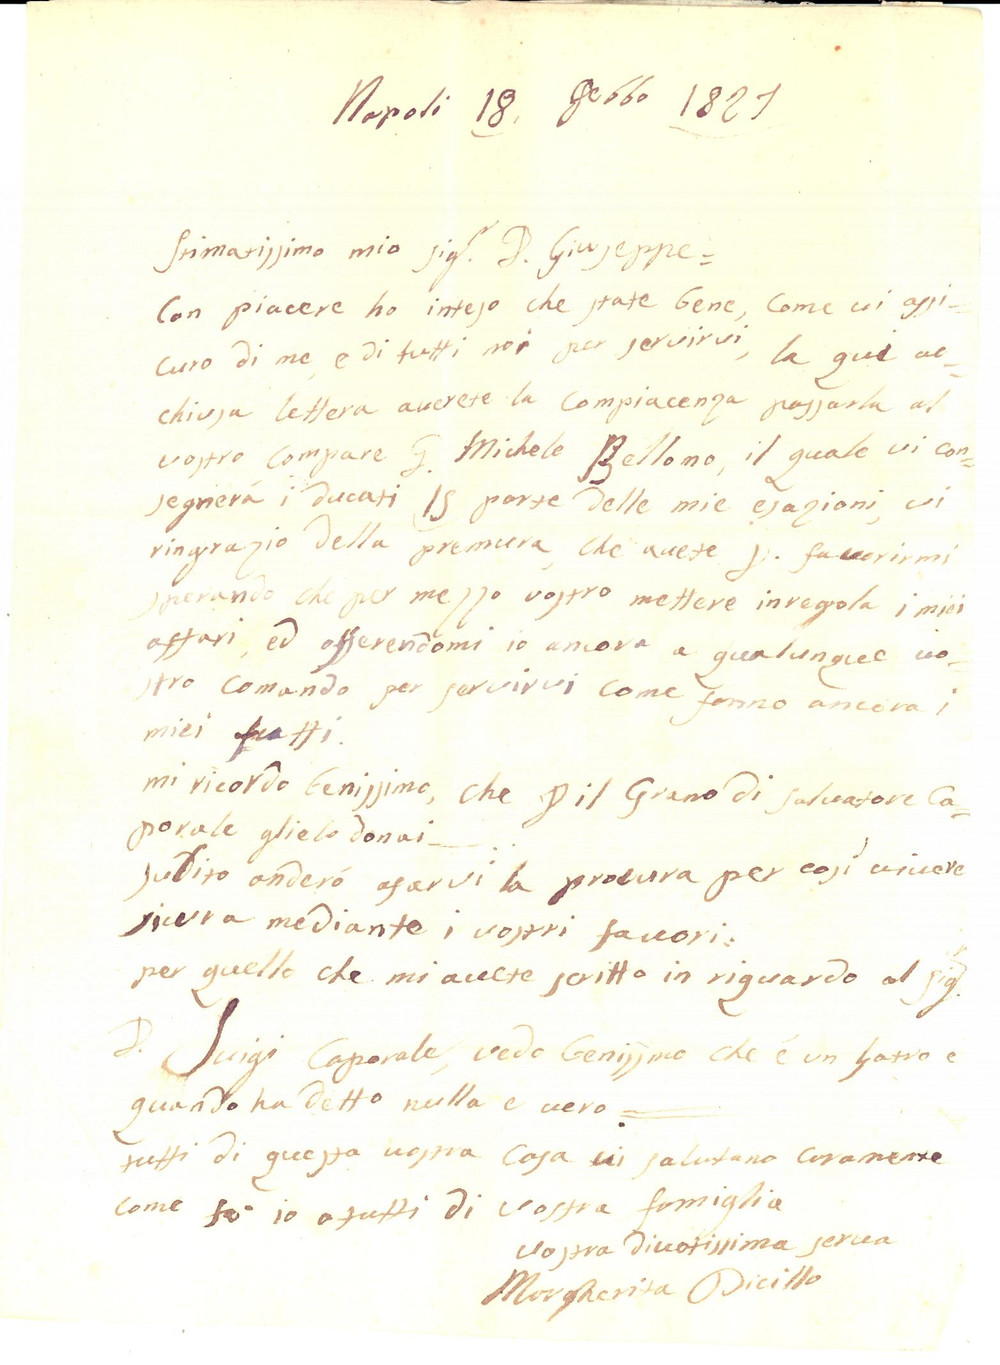 Napoli 18. Gebbo 1827
Stimatissimo mio sigr. D. Giuseppe=
Con piacere ho inteso che state bene, come vi assi=
curo di me, e di tutti noi per servirvi, la qui ac=
chiusa lettera averete la compiacenza passarla al
vostro compare D. Michele Bellomo, il quale vi con=
segnerá i ducati 15 parte delle mie esazioni, vi
ringrazio della premura, che avete p. favorirmi
sperando che per mezzo vostro mettere inregola i miei
affari, ed offerendomi io ancora a qualunque vo=
stro comando per servirvi come fanno ancora i
miei tutti.
mi ricordo benissimo, che p il Grano di Salvatore Ca=
porale glielo donai
subito anderó afarvi la procura per cosí vivere
sicura mediante i vostri favori.
per quello che mi avete scritto in riguardo al sigr.
D. Luigi Caporale, vedo benissimo che é un latro e
quando ha detto nulla e vero
tutti di questa vostra casa vi salutano caramente
come fo io atutti di vostra famiglia
vostra divotissima serva
Margherita Dicillo